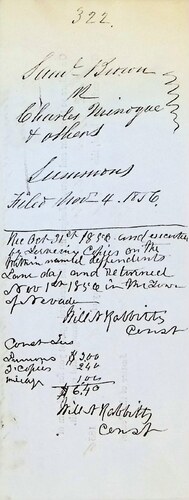 322.
Saml Brown
vs
Charles Minogue
& others
Summons
Filed Nov 4. 1856.
Rec Oct 31st 1856 and executed
by serveing Copies on the
within named defendents
Same day and Returned
Nov 1st 1856 in the Town
of Nevada
Will A Rabbitts
Const
Const Fees
Summons $3.00
2. Copies 2.40
mileage 1.00
$6.40
Will A Rabbitts
Const